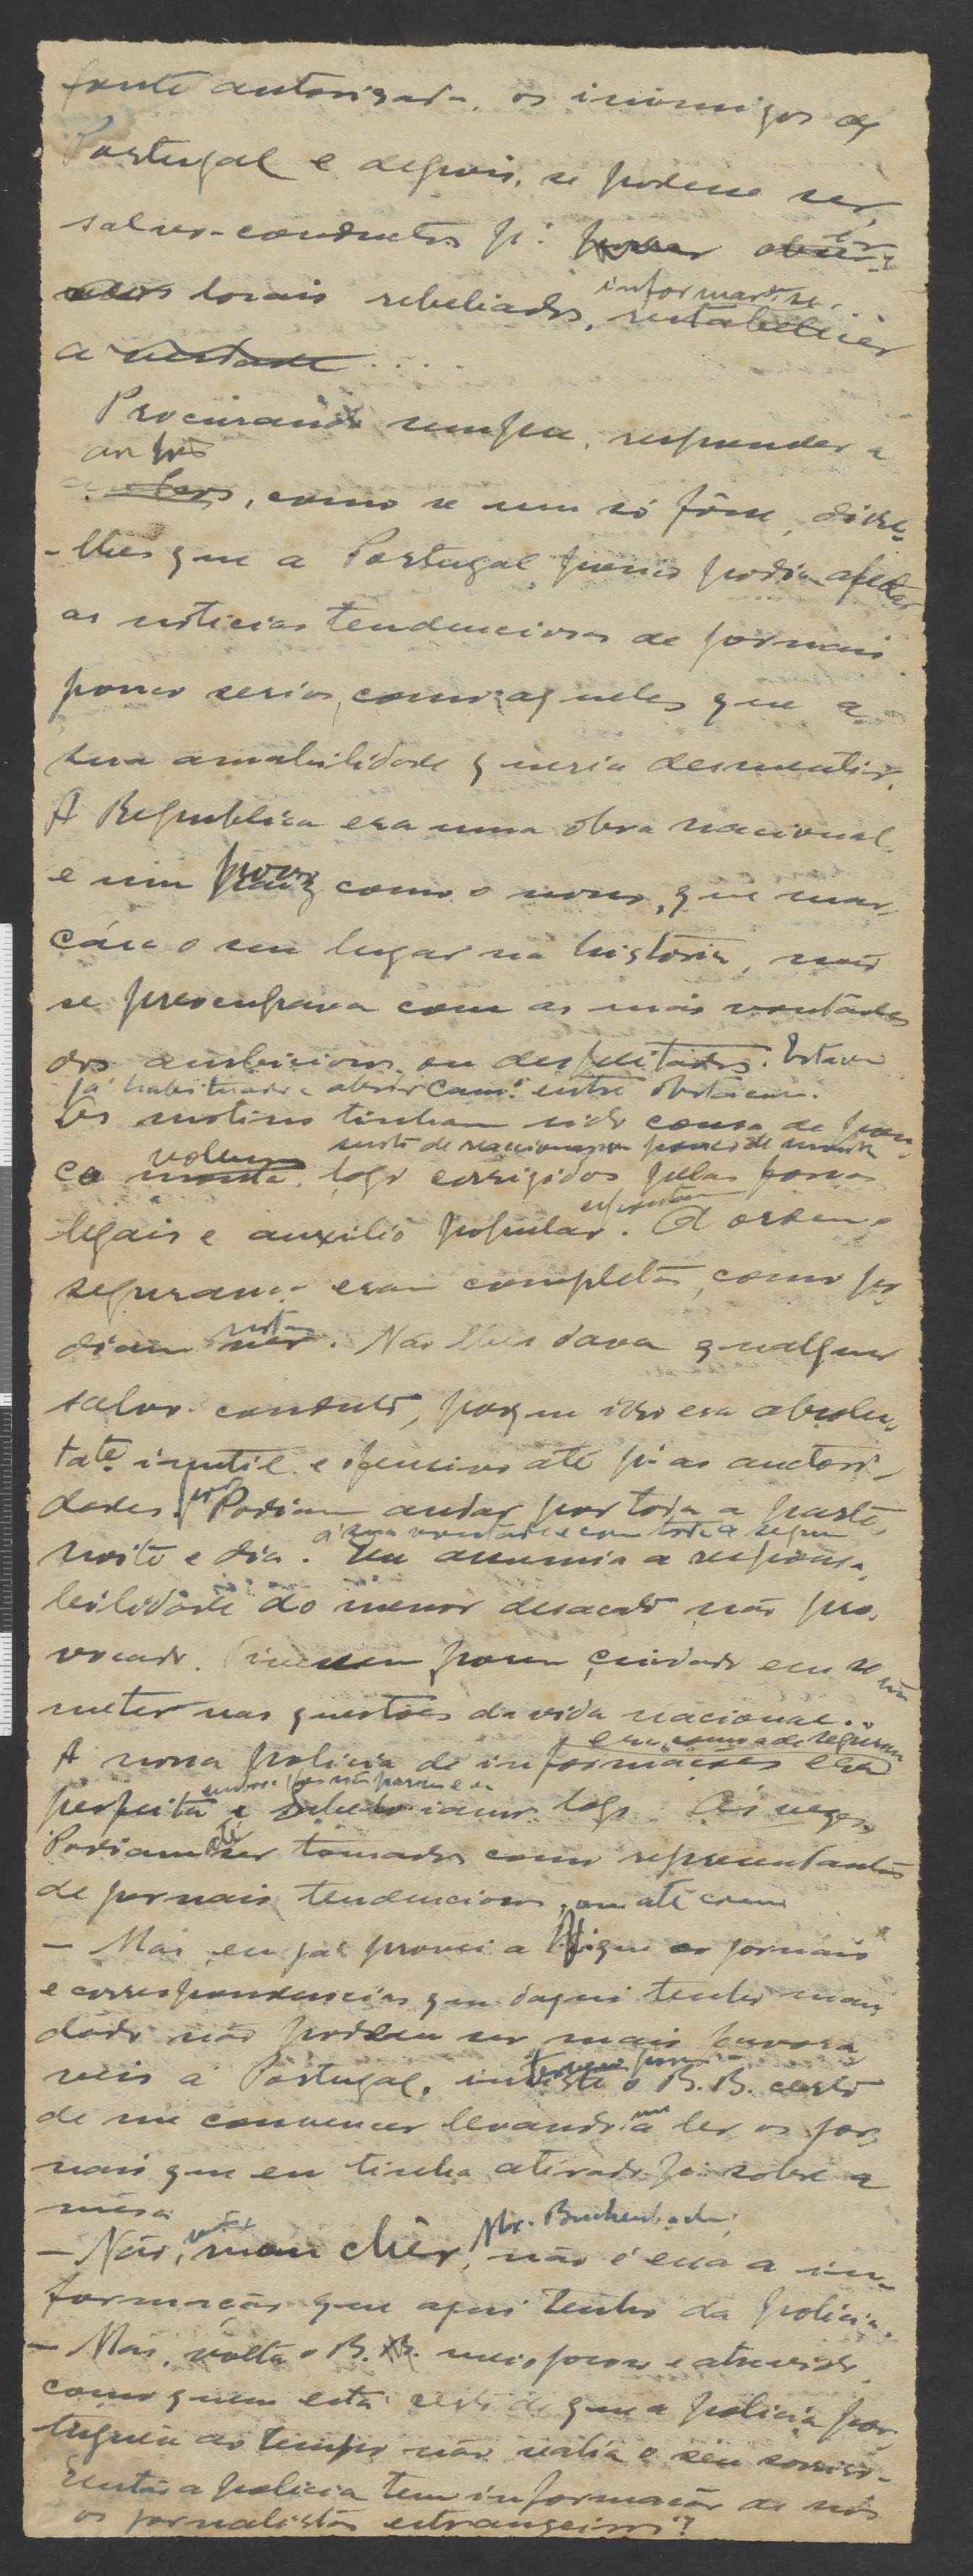 fonte autorisada, os inimigos de
Portugal e depois, se podesse ser,
salvos-conductos pª
locais rebeliados, informar-se.
a verdade ....
Procurando sempre, responder a
aos tres
como se um só fôsse, disse-
-lhes que a Portugal pouco podiam afectar
as noticias tendenciosas de jornais
pouco serios, como aqueles que a
sua amabilidade queria desmentir.
A Republica era uma obra nacional
e um povo como o nosso, que mar-
cára o seu lugar na história, não
se preocupava com as más vontades
dos ambiciosos ou despeitados. Estava
já habituado a abrir camº entre obstaculos.
Os motins tinham sido cousa de pou-
surto de reaccionarios pouco de monta
co monta, logo corrigidos pelas forças
legais e auxilio popular. A ordem e
segurança eram completas, como po-
diam ver. Não lhes dava qualquer
salvo-conduto, porque isso era absolu-
tatº inutil e ofensivo até pª as auctori-
dades. Podiam andar por toda a parte,
á sua vontade e com toda a segur
noite e dia. Eu assumia a responsa-
bilidade do menor desacato não pro-
vocado. Tivessem porem cuidado em se não
meter nas questões da vida nacional...
era, como a de segurança
A nossa policia de informações era
perfeita e sabedo iamos logo. Ás vezes
Podiam até ser tomados como representantes
de jornais tendenciosos, ou até como
— Mas eu já provei a V. que os jornais
e correspondencias que daqui tenho man-
dado não podiam ser mais favora-
veis a Portugal, insiste o B. B. certo
de me convencer levando-me a ler os jor-
nais que eu tinha atirado já sobre a
mesa.
— Não, mon chèr, Mr. Buckenbacher, não é essa a in-
formação que aqui tenho da policia.
— Mas, volta o B. B. meio jocoso e atrevido
como quem está certo de que a policia por-
tuguesa ao tempo não valia o seu sorriso-
Então a policia tem informações de nós
os jornalistas estrangeiros?